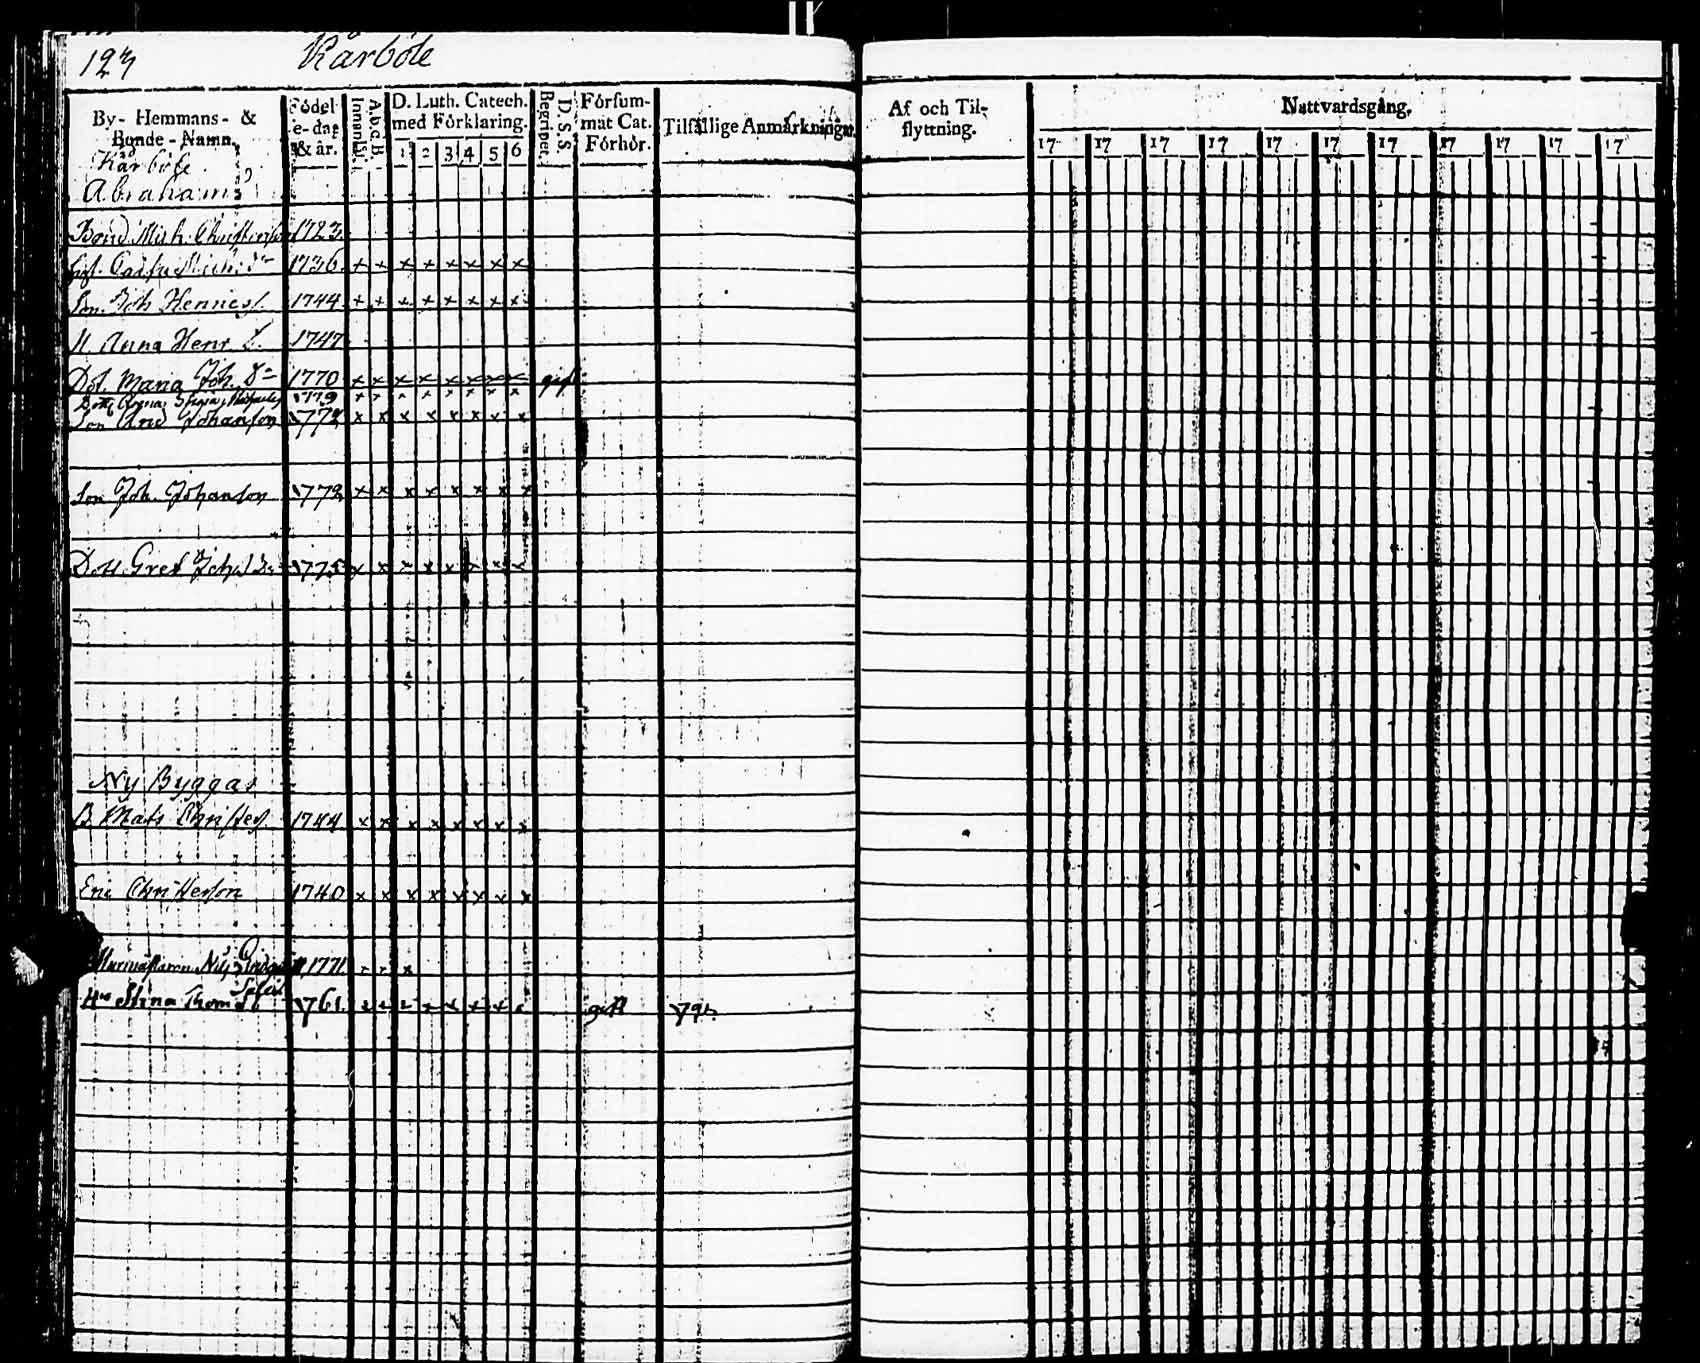 123 Kårböle
By- Hemmans- & Bonde-Namn. Födelse-dag & år. A.b.c.B. Innanläs. D. Luth. Catech. med Förklaring. 1 2 3 4 5 6 D.S.S. Begripet. Försummat Cat. Förhör. Tilfällige Anmärkningar. Af och Tilflyttning. Nattvardsgång.
17 17 17 17 17 17 17 17 17 17 17
Kårböle
Abrahams
Bond. Mich. Christersson 1723.
Mich. dr 1736. x x x x x x x x
Son. Joh Henricss. 1744. x x x x x x x x
H. Anna Henr. D. 1747
Dot. Maria Joh. Dr 1770 x x x x x x x x gift
Anna 1779 x x x x x x x x
Son Johanson 1772 x x x x x x x x
Son Joh. Johanson 1772 x x x x x x x x
Dott. Gret Joh. Dr 1775 x x x x x x x x
Ny Byggas
B. Mats Christers. 1744 x x x x x x x x
Eric Christerson 1740 x x x x x x x x
Murmästaren Nils 1771.
Hus Stina Thom 1761. x x x x x x x x gift 1795.